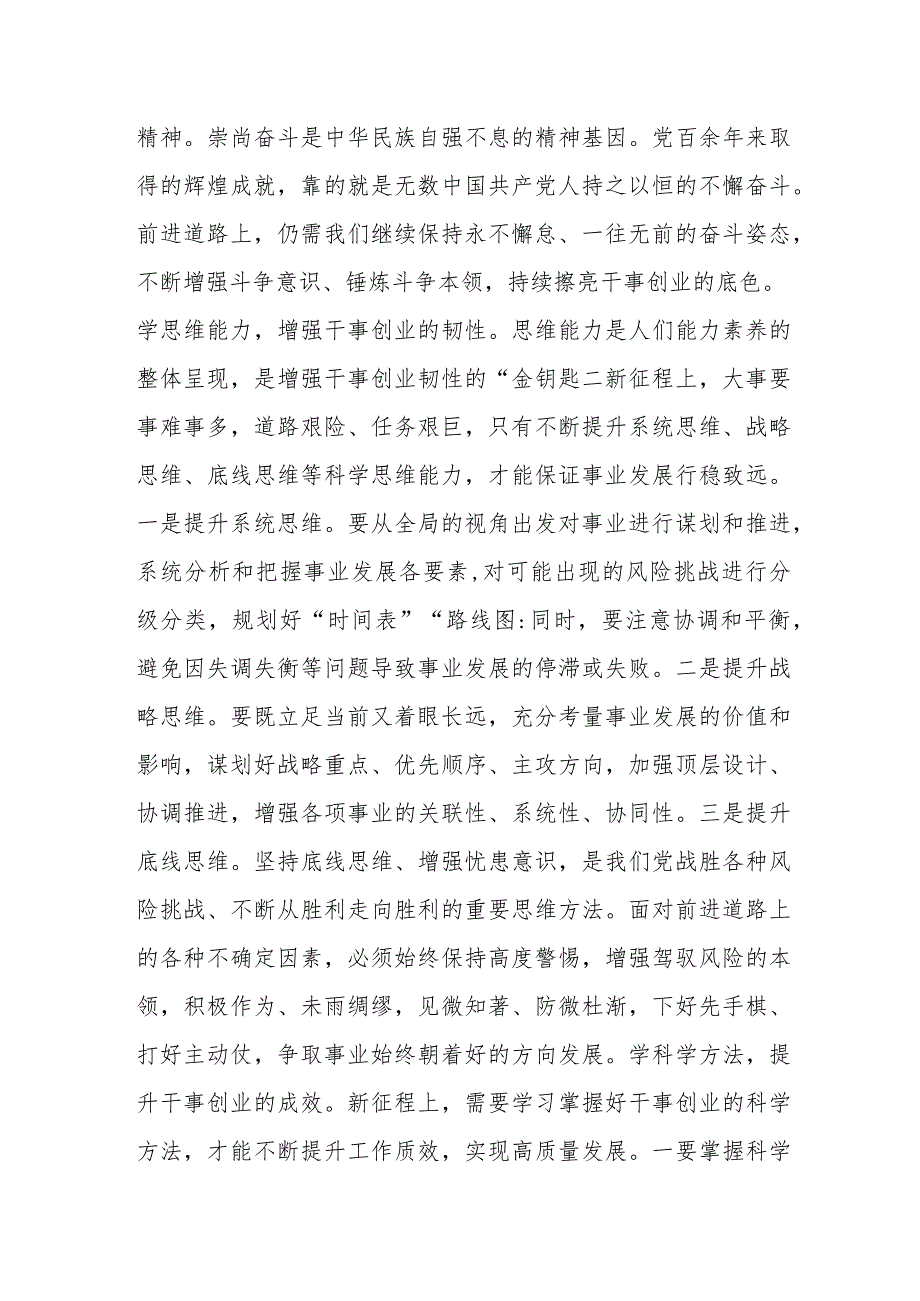 精神。崇尚奋斗是中华民族自强不息的精神基因。党百余年来取
得的辉煌成就，靠的就是无数中国共产党人持之以恒的不懈奋斗。
前进道路上，仍需我们继续保持永不懈怠、一往无前的奋斗姿态，
不断增强斗争意识、锤炼斗争本领，持续擦亮干事创业的底色。
学思维能力，增强干事创业的韧性。思维能力是人们能力素养的
整体呈现，是增强干事创业韧性的“金钥匙二新征程上，大事要
事难事多，道路艰险、任务艰巨，只有不断提升系统思维、战略
思维、底线思维等科学思维能力，才能保证事业发展行稳致远。
一是提升系统思维。要从全局的视角出发对事业进行谋划和推进，
系统分析和把握事业发展各要素,对可能出现的风险挑战进行分
级分类，规划好“时间表”“路线图:同时，要注意协调和平衡，
避免因失调失衡等问题导致事业发展的停滞或失败。二是提升战
略思维。要既立足当前又着眼长远，充分考量事业发展的价值和
影响，谋划好战略重点、优先顺序、主攻方向，加强顶层设计、
协调推进，增强各项事业的关联性、系统性、协同性。三是提升
底线思维。坚持底线思维、增强忧患意识，是我们党战胜各种风
险挑战、不断从胜利走向胜利的重要思维方法。面对前进道路上
的各种不确定因素，必须始终保持高度警惕，增强驾驭风险的本
领，积极作为、未雨绸缪，见微知著、防微杜渐，下好先手棋、
打好主动仗，争取事业始终朝着好的方向发展。学科学方法，提
升干事创业的成效。新征程上，需要学习掌握好干事创业的科学
方法，才能不断提升工作质效，实现高质量发展。一要掌握科学